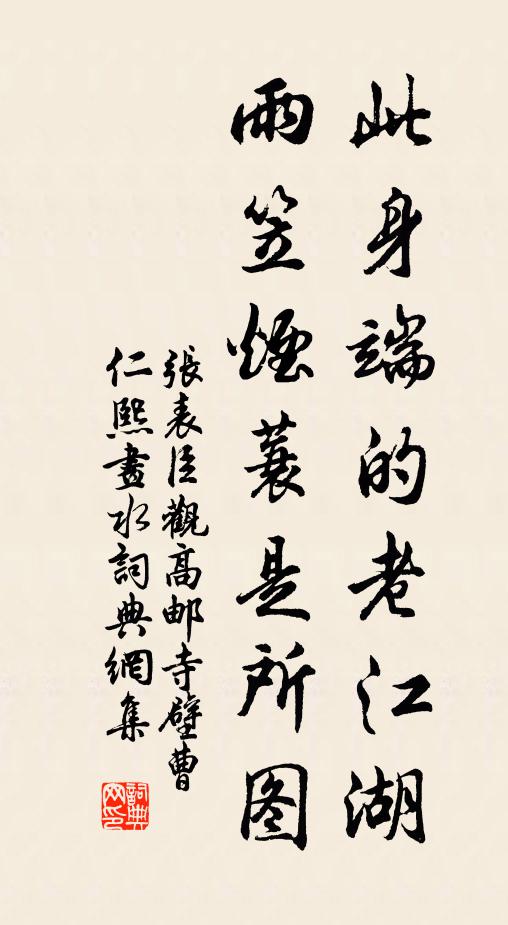 此身端的老江湖
雨笠煙蓑是所图
張表臣觀高邮寺壁曹
仁熙畫水詞典網集
詞典
网印